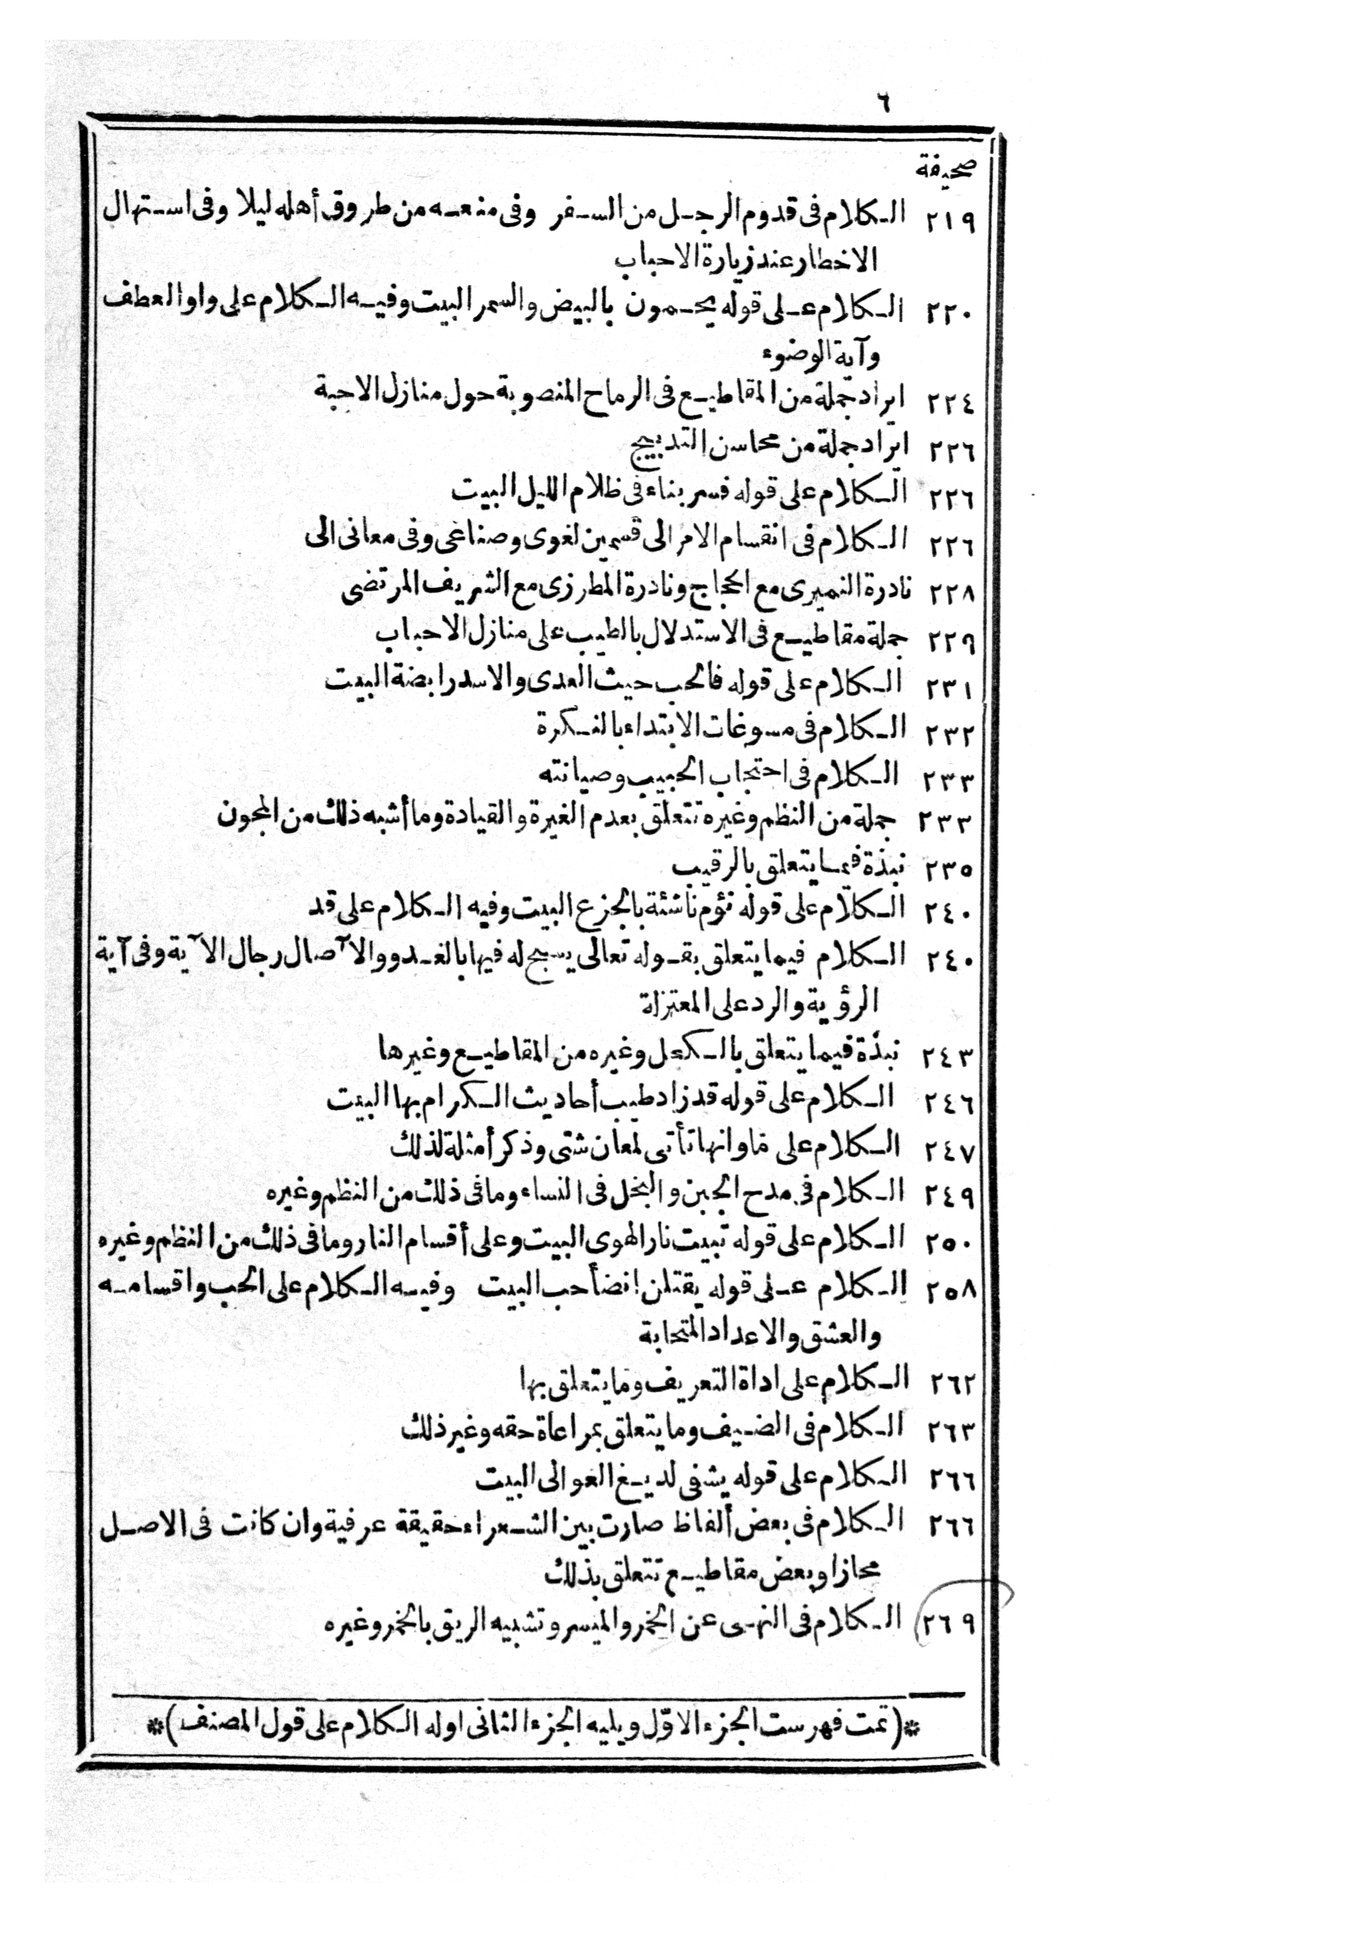 ٦
صحيفة
٢١٩ الكلام فى قدوم الرجل من السفر وفى منعه من طروق أهله ليلا وفى استهال
الاخطار عند زيارة الاحباب
٢٢٠ الكلام على قوله يحمون بالبيض والسمر البيت وفيه الكلام على واو العطف
وآية الوضوء
٢٢٤ ايراد جملة من المقاطيع فى الرماح المنصوبة حول منازل الاحبة
٢٢٦ ايراد جملة من محاسن التدبيج
٢٢٦ الكلام على قوله فسر بنا فى ظلام الليل البيت
٢٢٦ الكلام فى انقسام الامر الى قسمين لغوى وصناعى وفى معانى الى
٢٢٨ نادرة النميرى مع الحجاج ونادرة المطرزى مع الشريف المرتضى
٢٢٩ جملة مقاطيع فى الاستدلال بالطيب على منازل الاحباب
٢٣١ الكلام على قوله فالحب حيث العدى والاسد رابضة البيت
٢٣٢ الكلام فى مسوغات الابتداء بالنكرة
٢٣٣ الكلام فى احتجاب الحبيب وصيانته
٢٣٣ جملة من النظم وغيره تتعلق بعدم الغيرة والقيادة وما أشبه ذلك من المجون
٢٣٥ نبذة فيما يتعلق بالرقيب
٢٤٠ الكلام على قوله نؤم ناشئة بالجزع البيت وفيه الكلام على قد
٢٤٠ الكلام فيما يتعلق بقوله تعالى يسبح له فيها بالغدو والآصال رجال الآية وفى آية
الرؤية والرد على المعتزلة
٢٤٣ نبذة فيما يتعلق بالكحل وغيره من المقاطيع وغيرها
٢٤٦ الكلام على قوله قد زاد طيب أحاديث الكرام بها البيت
٢٤٧ الكلام على ما وانها تأتى لمعان شتى وذكر أمثلة لذلك
٢٤٩ الكلام فى مدح الجبن والبخل فى النساء وما فى ذلك من النظم وغيره
٢٥٠ الكلام على قوله تبيت نار الهوى البيت وعلى أقسام النار وما فى ذلك من النظم وغيره
٢٥٨ الكلام على قوله يقتلن انضاء حب البيت وفيه الكلام على الحب واقسامه
والعشق والاعداد المتحابة
٢٦٢ الكلام على اداة التعريف وما يتعلق بها
٢٦٣ الكلام فى الضيف وما يتعلق بمراعاة حقه وغير ذلك
٢٦٦ الكلام على قوله يشفى لديغ العوالى البيت
٢٦٦ الكلام فى بعض ألفاظ صارت بين الشعراء حقيقة عرفية وان كانت فى الاصل
مجازا وبعض مقاطيع تتعلق بذلك
٢٦٩ الكلام فى النهى عن الخمر والميسر وتشبيه الريق بالخمر وغيره
*(تمت فهرست الجزء الاوّل ويليه الجزء الثانى اوله الكلام على قول المصنف)*